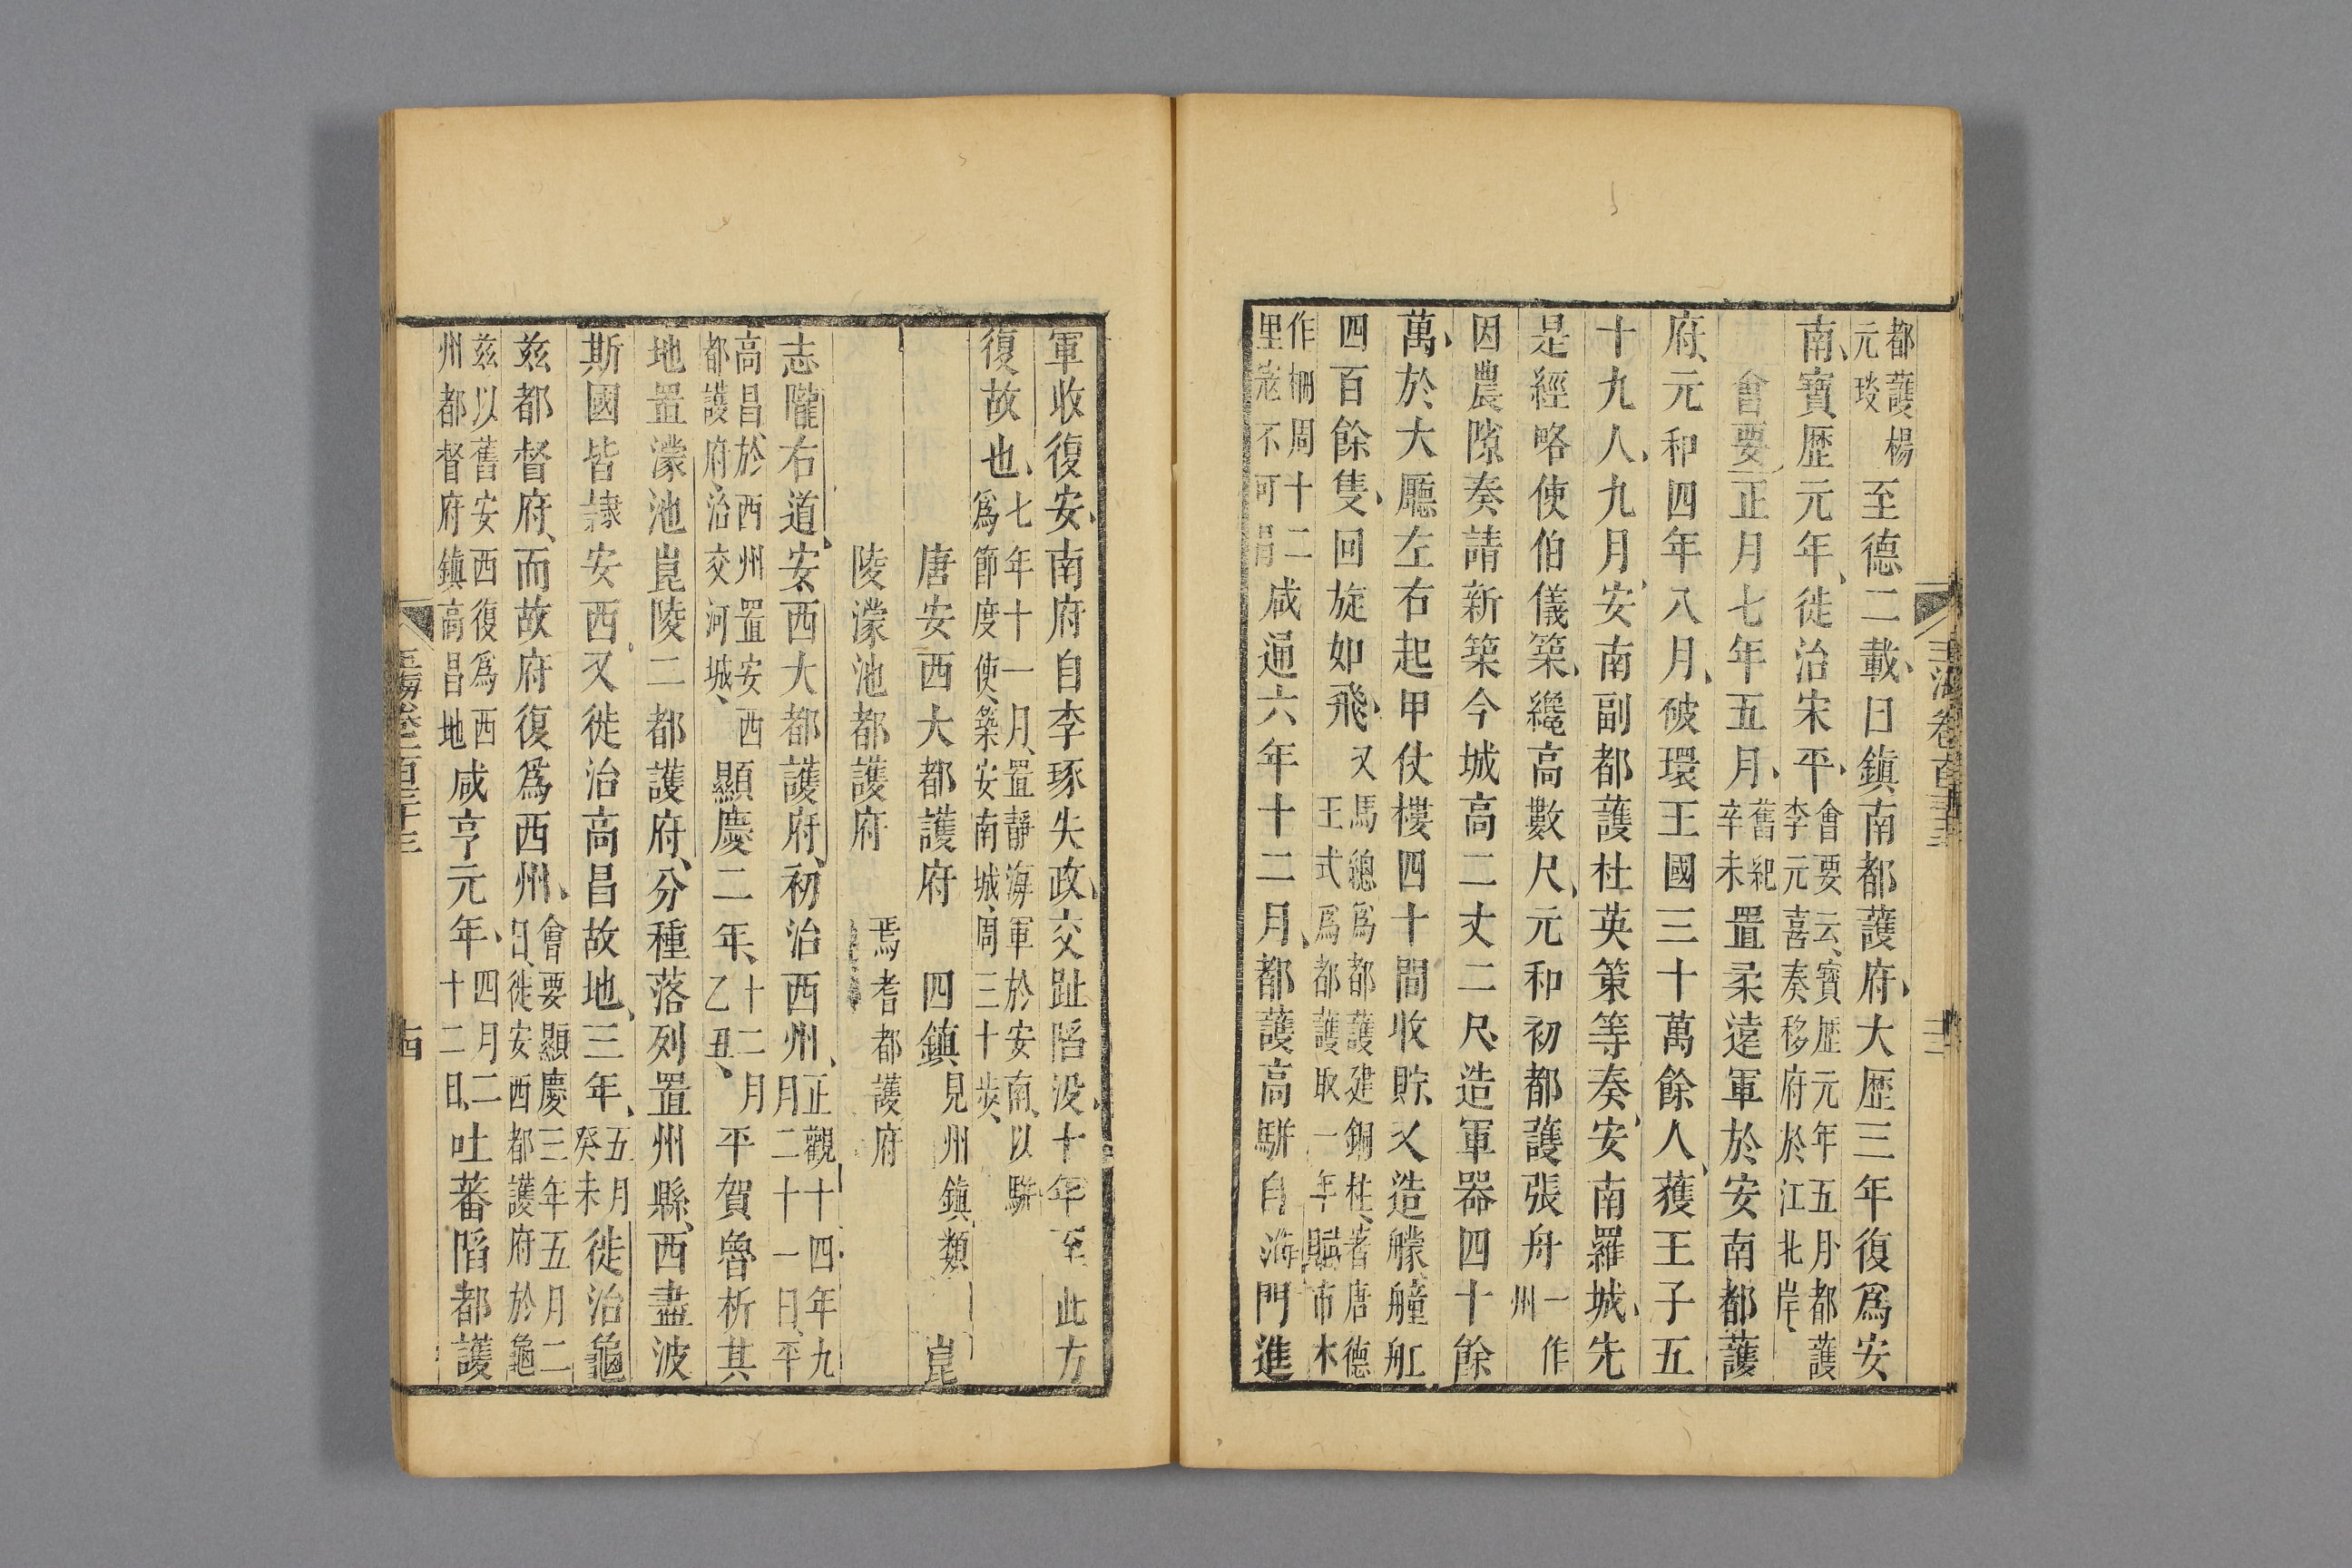 玉海卷百三十三
都護楊
元琰
至德二載日鎮南都護府大歷三年復爲安
南寶歴元年徙治宋平
會要云寶歷元年五月都護
李元喜奏移府於江北岸
會要正月七年五月
舊紀
辛未
置柔遠軍於安南都護
府元和四年八月破環王國三十萬餘人獲王子五
十九人九月安南副都護杜英策等奏安南羅城先
是經略使伯儀築纔高數尺元和初都護張舟
一作
州
因農隙奏請新築今城高二丈二尺造軍器四十餘
萬於大廳左右起甲仗樓四十間收貯又造艨艟舡
四百餘隻回旋如飛
又馬總爲都護建銅柱著唐德
王式爲都護取一年賦市木
作柵周十二
里寇不可冐
咸通六年十二月都護高駢自海門進
軍收復安南府自李琢失政交趾䧟没十年至此方
復故也
七年十一月置靜海軍於安南以駢
爲節度使築安南城周三十步
唐安西大都護府
四鎮
見州鎮類
崑
陵濛池都護府
焉耆都護府
志隴右道安西大都護府初治西州
正觀十四年九
月二十一日平
高昌於西州置安西
都護府治交河城
顯慶二年
十二月
乙丑
平賀魯析其
地置濛池崑陵二都護府分種落列置州縣西盡波
斯國皆隷安西又徙治高昌故地三年
五月
癸未
徙治龜
兹都督府而故府復爲西州
會要顯慶三年五月二
日徙安西都護府於龜
兹以舊安西復爲西
州都督府鎮高昌地
咸亨元年
四月二
十二日
吐蕃䧟都護
玉海卷一百三十三
十四